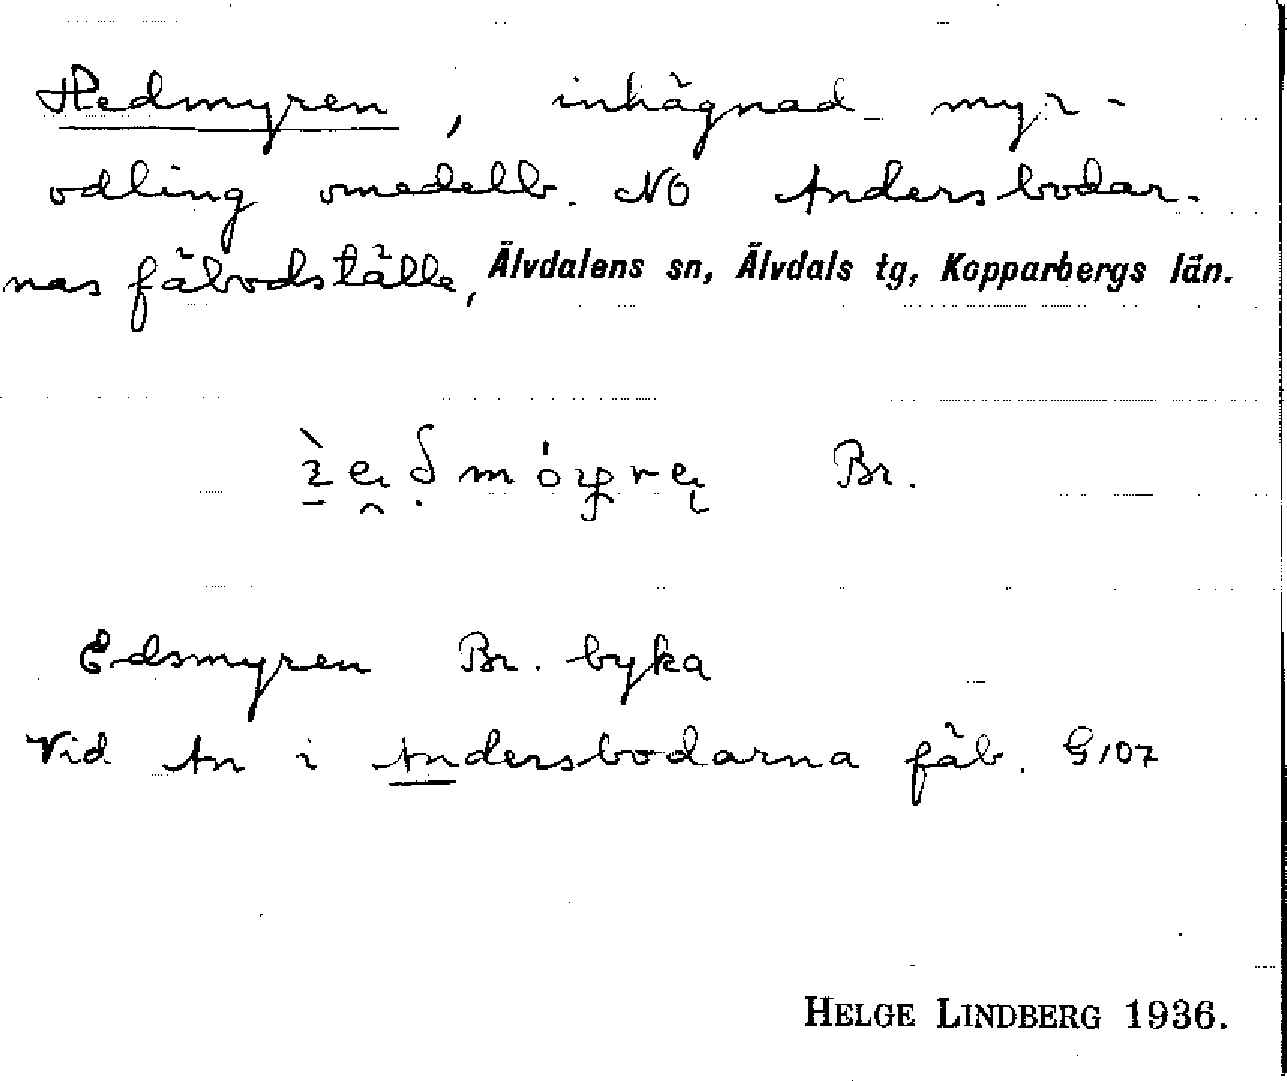 Hedmyren, inhägnad myr-
odling omedelb. NO Andersbodar-
nas fäbodställe, Älvdalens sn, Älvdals tg, Kopparbergs län.
Br.
Edsmyren Br. byka
Vid An i Andersbodarna fäb. G107
HELGE LINDBERG 1936.